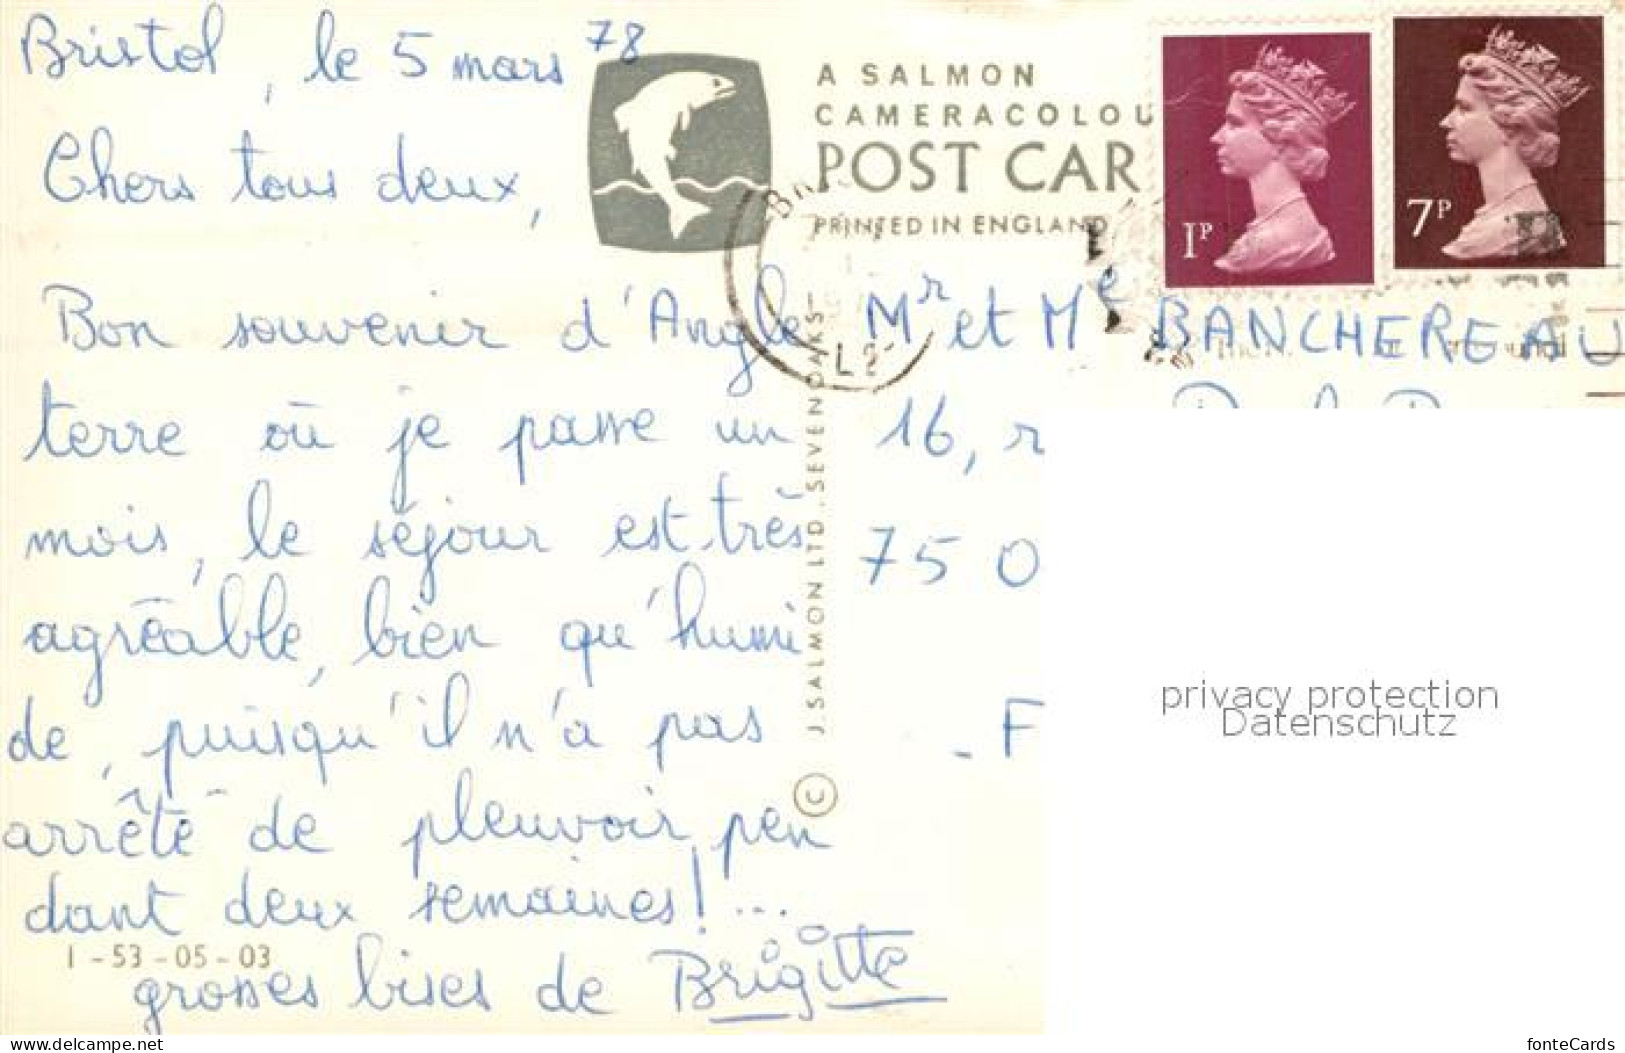 Bristol, le 5 mars 78
Chers tous deux,
Bon souvenir d'Angle
terre où je passe un
mois, le séjour est très
agréable, bien qu'humi
de, puisqu'il n'a pas
arrêté de pleuvoir, pen
dant deux semaines!...
grosses bises de Brigitte
I - 53 - 05 - 03
A SALMON
CAMERACOLOU
POST CAR
PRINTED IN ENGLAND
J. SALMON LTD., SEVENOAKS
©
1P
7P
Mr et Me BANCHEREAU
16, r
75 0
- F
privacy protection
Datenschutz
www.delcampe.net
fonteCards